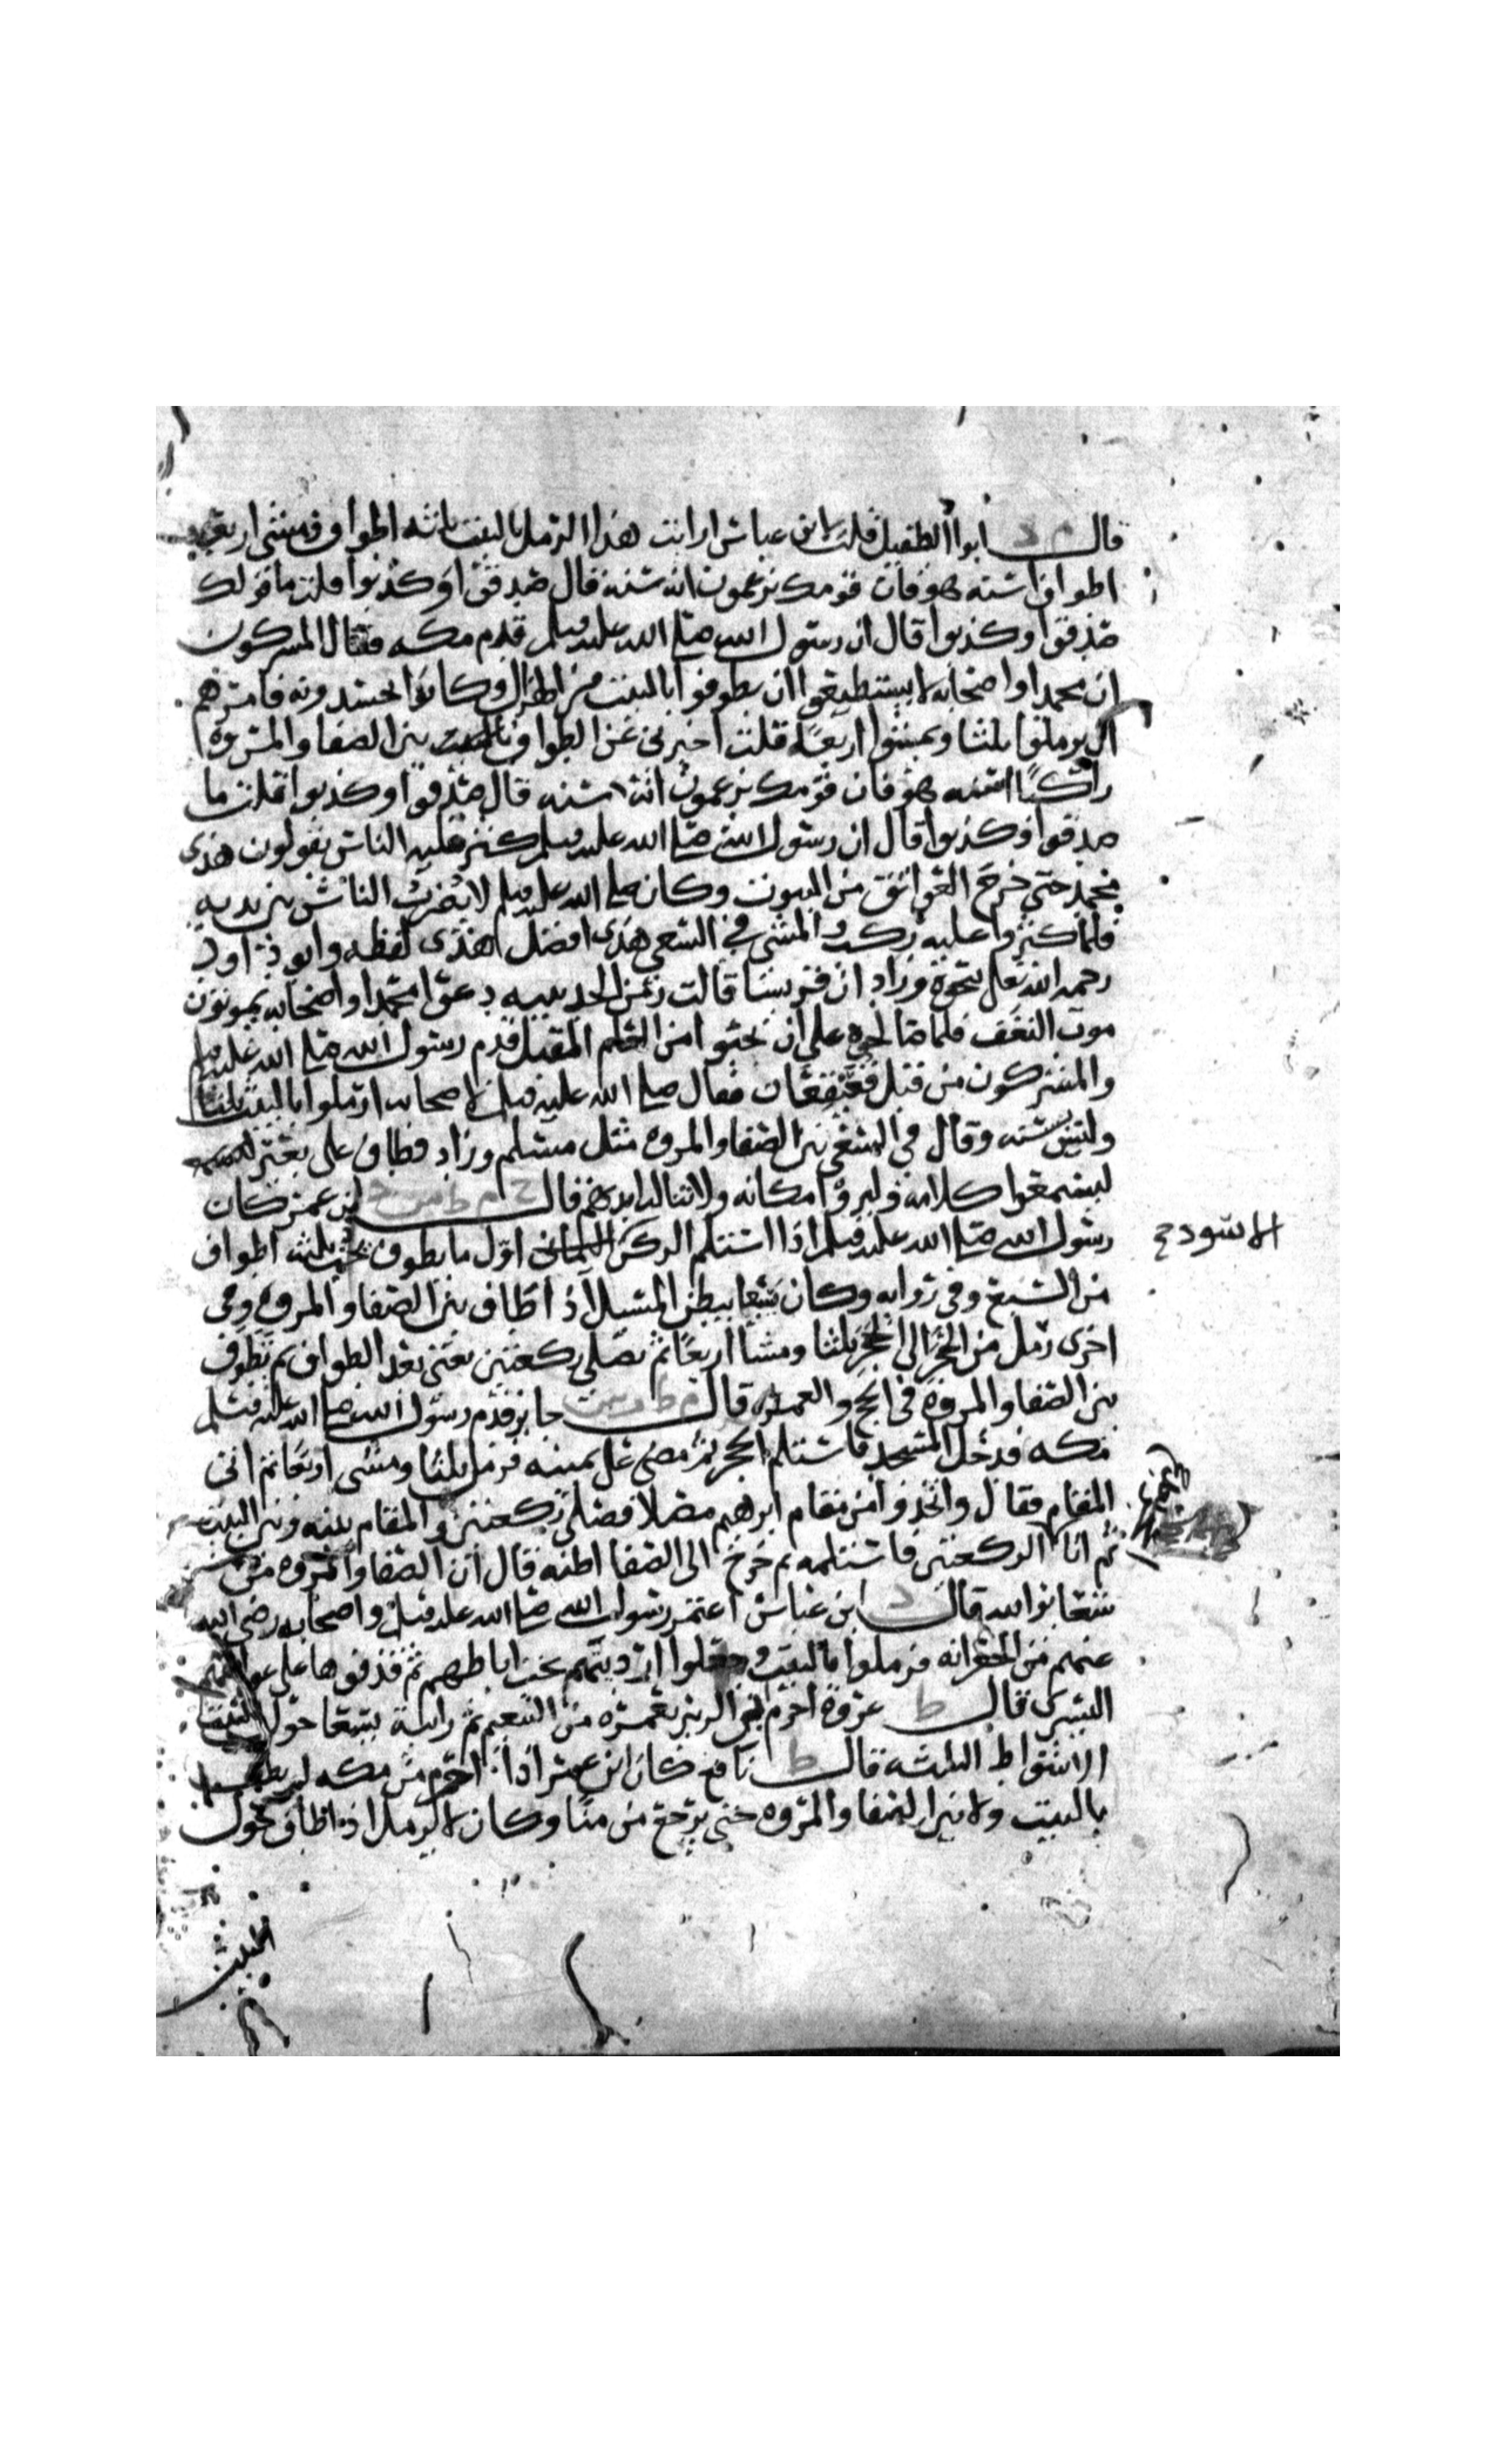 قال م د ابوا الطفيل قلت لابن عباس ارايت هذا الرمل بالبيت ثلثه اطواف ومشى اربعه
اطواف اسنه هو فان قومك يزعمون انه سنه قال صدقوا وكذبوا قلت ما قولك
صدقوا وكذبوا قال ان رسول الله صلى الله عليه وسلم قدم مكه فقال المشركون
ان محمدا واصحابه لا يستطيعوا ان يطوفوا بالبيت من الهزال وكانوا يحسدونه فامرهم
ان يرملوا ثلثا ويمشوا اربعا قلت اخبرني عن الطواف بين الصفا والمروه
راكبا اسنه هو فان قومك يزعمون انه سنه قال صدقوا وكذبوا قلت ما
صدقوا وكذبوا قال ان رسول الله صلى الله عليه وسلم كثر عليه الناس يقولون هذى
محمد حتى خرج العواتق من البيوت وكان صلى الله عليه وسلم لا يضرب الناس بين يديه
فلما كثروا عليه ركب والمشي في السعي هذى افضل هذى لفظه وابو داود
رحمه الله تعالى نحوه وزاد ان قريشا قالت زمن الحديبيه دعوا محمدا واصحابه يموتون
موت النغف فلما صالحوه على ان يحجوا من العام المقبل قدم رسول الله صلى الله عليه وسلم
والمشركون من قبل قعيقعان فقال صلى الله عليه وسلم لاصحابه ارملوا بالبيت ثلثا
وليس سنه وقال في السعي بين الصفا والمروه مثل مسلم وزاد فطاف على بعير
ليسمعوا كلامه وليروا مكانه ولا تناله ايديهم قال خ م ط د س ابن عمر كان
رسول الله صلى الله عليه وسلم اذا استلم الركن اول ما يطوف يخب ثلثه اطواف
الاسود ح
من السبع وفي روايه وكان يسعا ببطن المسيل اذا طاف بين الصفا والمروه وفي
اخرى رمل من الحجر الى الحجر ثلثا ومشا اربعا ثم يصلي ركعتين يعني بعد الطواف ثم يطوف
بين الصفا والمروه في الحج والعمره قال م ط د س ت جابر قدم رسول الله صلى الله عليه وسلم
مكه فدخل المسجد فاستلم الحجر ثم مضى على يمينه فرمل ثلثا ومشى اربعا ثم اتى
المقام فقال واتخذوا من مقام ابرهيم مصلا فصلى ركعتين والمقام بينه وبين البيت
ثم اتا الركعتين فاستلمه ثم خرج الى الصفا اظنه قال ان الصفا والمروه من
شعائر الله قال د ابن عباس اعتمر رسول الله صلى الله عليه وسلم واصحابه رضي الله
عنهم من الجعرانه فرملوا بالبيت وجعلوا ارديتهم تحت اباطهم ثم قذفوها على عواتقهم
اليسرى قال ط عروه احرم ابن الزبير بعمره من التنعيم ثم رايته يسعا حول البيت
الاشواط الثلثه قال ط نافع كان ابن عمر اذا احرم من مكه لم يطف
بالبيت ولا بين الصفا والمروه حتى يرجع من منا وكان لا يرمل اذا طاف حول
البيت